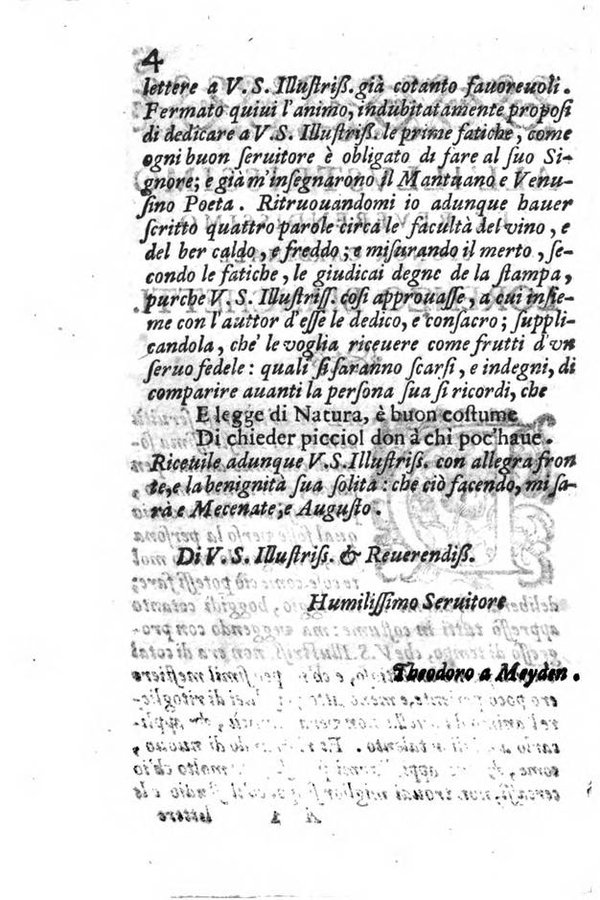 4
lettere a V. S. Illuſtriſſ. già cotanto fauoreuoli.
Fermato quiui l'animo, indubitatamente propoſi
di dedicare a V. S. Illuſtriſſ. le prime fatiche, come
ogni buon ſeruitore è obligato di fare al ſuo Si-
gnore; e già m'inſegnarono il Mantuano e Venu-
ſino Poeta. Ritruouandomi io adunque hauer
ſcritto quattro parole circa le facultà del vino, e
del ber caldo, e freddo; e miſurando il merto, ſe-
condo le fatiche, le giudicai degne de la ſtampa,
purche V. S. Illuſtriſſ. coſi approuaſſe, a cui inſie-
me con l'auttor d'eſſe le dedico, e conſacro; ſuppli-
candola, che' le voglia riceuere come frutti d'vn
ſeruo fedele: quali ſi ſaranno ſcarſi, e indegni, di
comparire auanti la perſona ſua ſi ricordi, che
E legge di Natura, è buon coſtume
Di chieder picciol don à chi poc'haue.
Riceuile adunque V.S.Illuſtriſſ. con allegra fron
te, e la benignità ſua ſolita: che ciò facendo, mi ſa-
rà e Mecenate, e Auguſto.
Di V. S. Illuſtriſſ. & Reuerendiſſ.
Humiliſſimo Seruitore
Theodoro a Meyden.